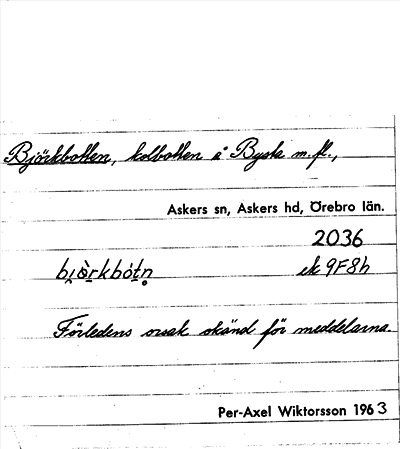 Björkbotten, kolbotten å Bysta m.fl.,
Askers sn, Askers hd, Örebro län.
2036
bi̯ö̀rkbótn̥ ek 9F8h
Förledens orsak okänd för meddelarna.
Per-Axel Wiktorsson 1963